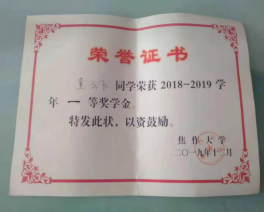 荣誉证书
同学荣获2018-2019学
年一等奖学金。
特发此状，以资鼓励。
焦作大学
二〇一九年十二月